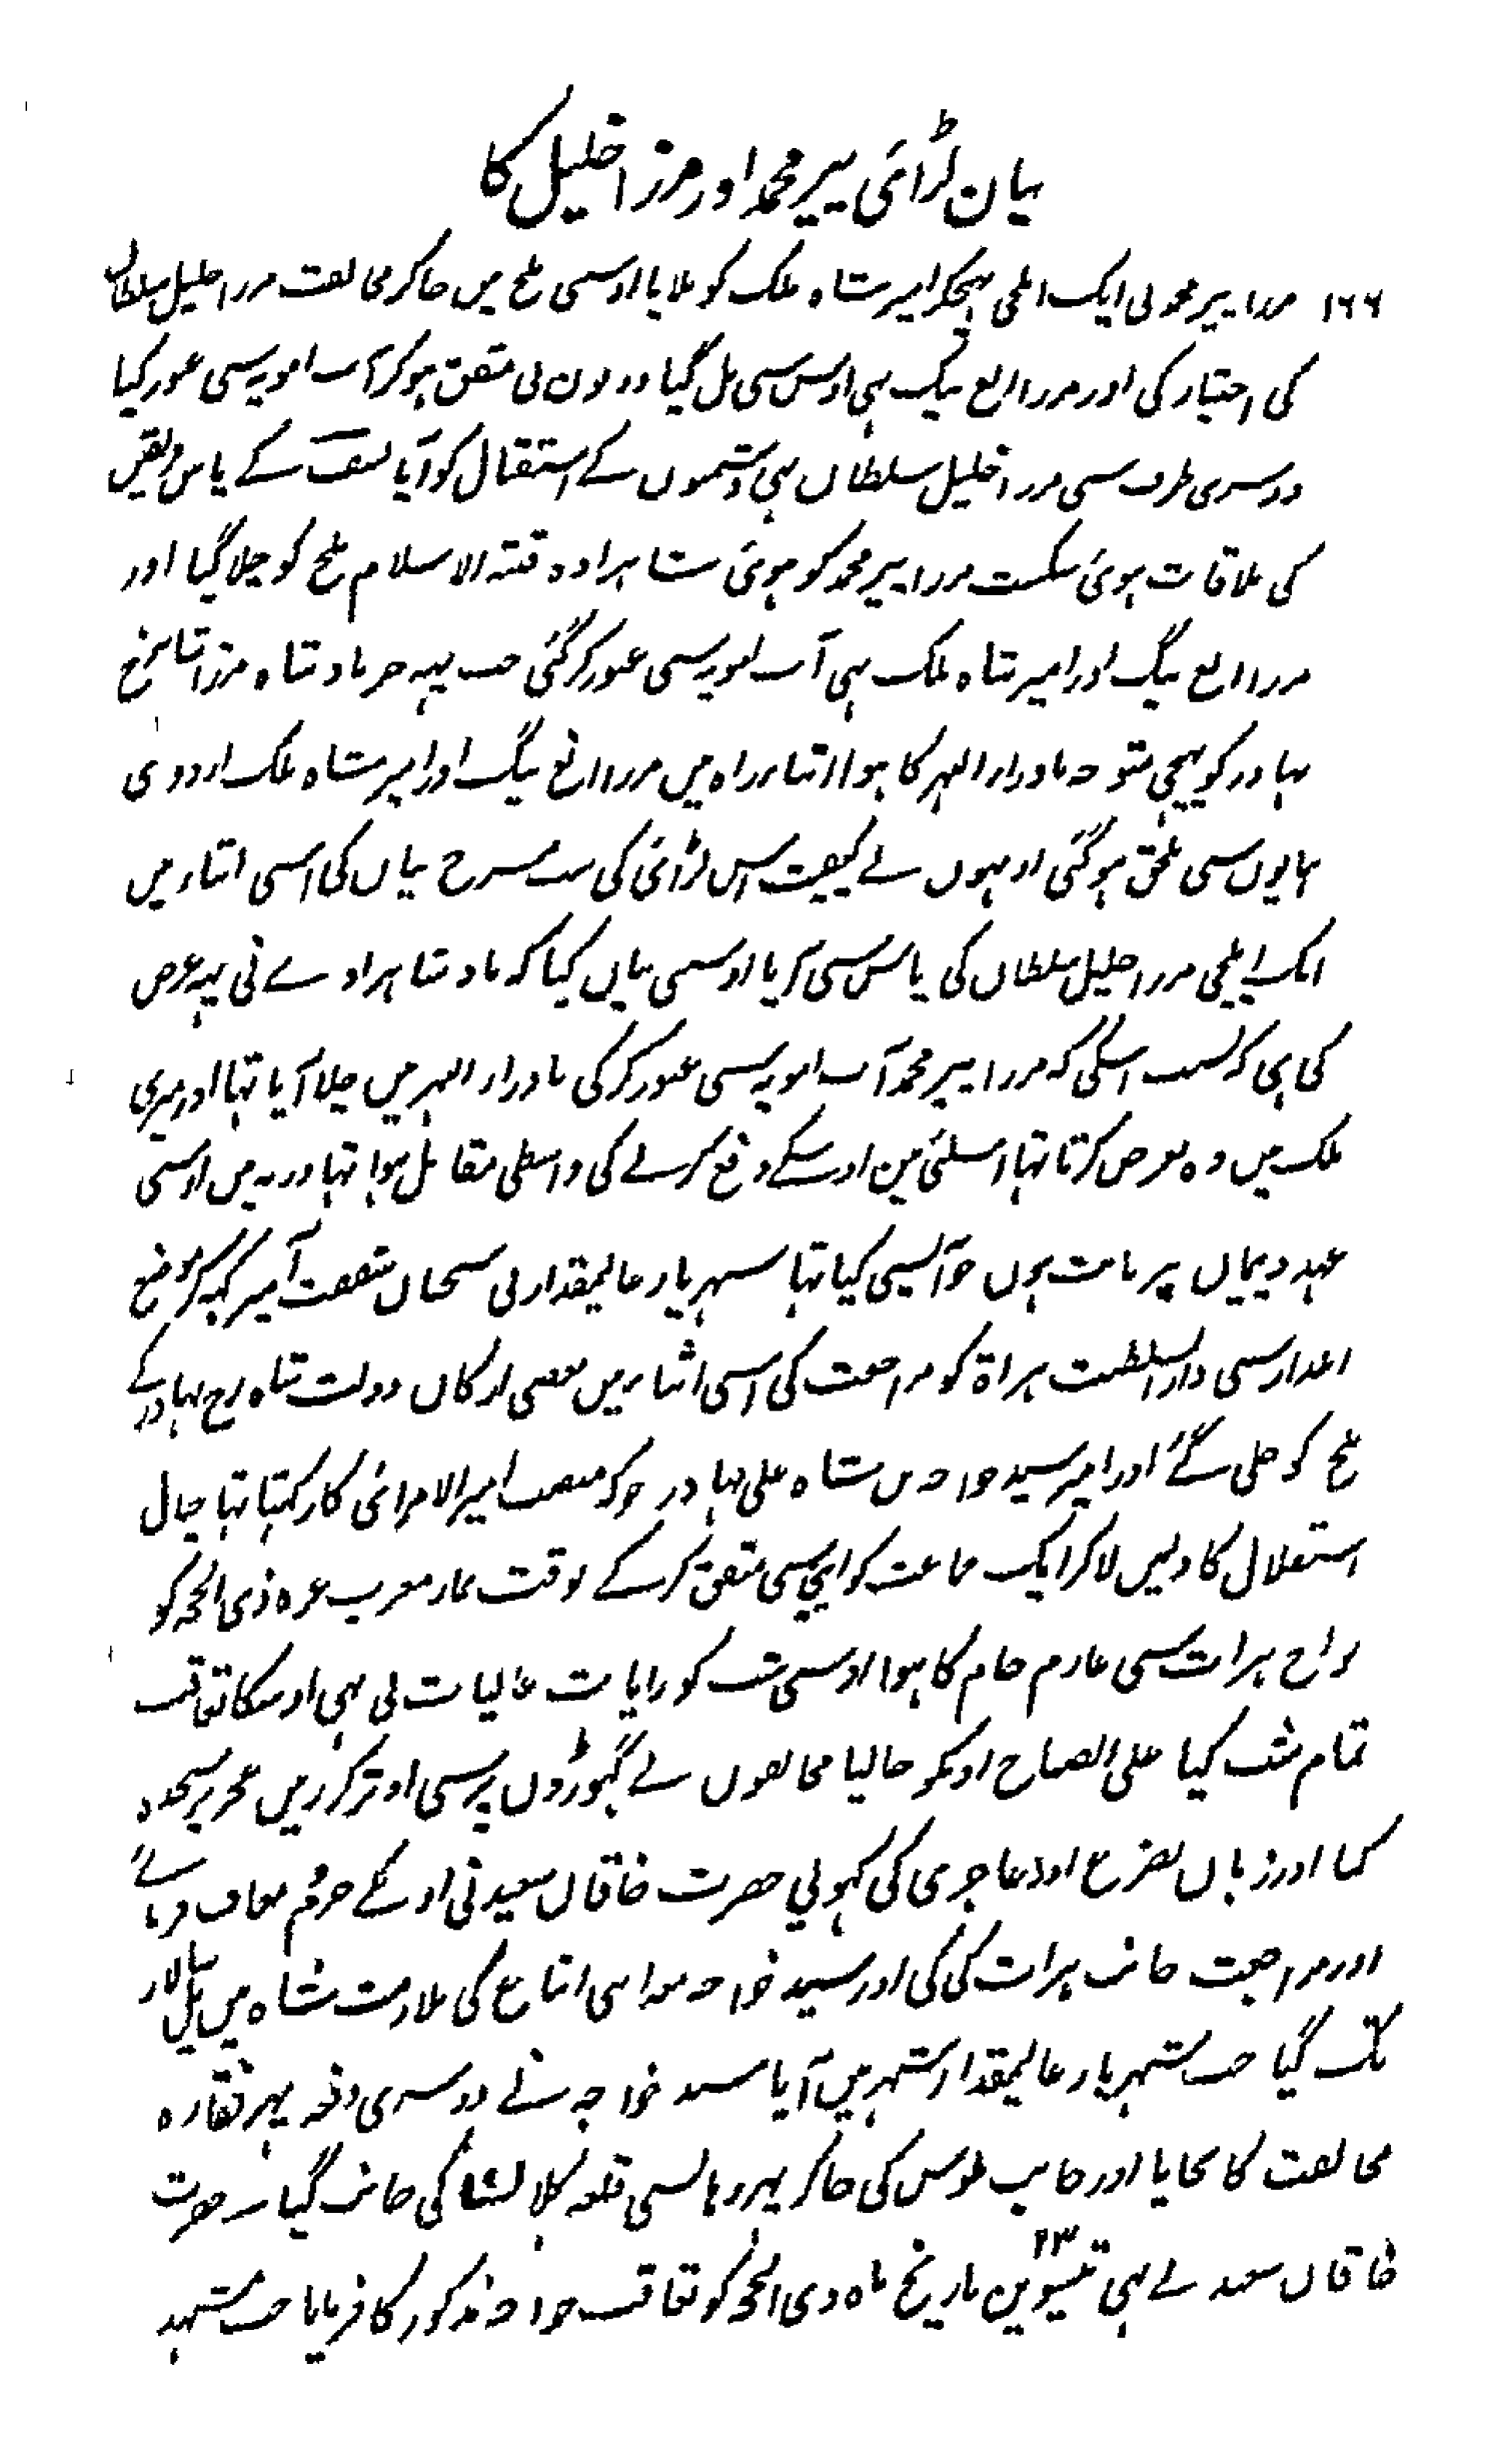 بیان لڑائی پیر محمد اور مرزا خلیل کا
۱۶۶ مرزا پیر محمد نی ایک ایلچی بہیجکر امیر شاہ ملک کو بلایا اوسی بلخ میں جاکر مخالفت مرزا خلیل سلطان
کی اختیار کی اور مرزا الغ بیگ بہی اوس سی مل گیا دونون نی متفق ہوکر آب امویہ سی عبور کیا
دوسری طرف سی مرزا خلیل سلطان بہی دشمنوں کے استقبال کو آیا نسف کے پاس فریقین
کی ملاقات ہوئی شکست مرزا پیر محمد کو ہوئی شاہزادہ قبتہ الاسلام بلخ کو چلا گیا اور
مرزا الغ بیگ اور امیر شاہ ملک بہی آب امویہ سی عبور کر گئی جب یہہ خبر بادشاہ مرزا شاہرخ
بہادر کو پہنچی متوجہ ماوراء النہر کا ہوا اثناء راہ میں مرزا الغ بیگ اور امیر شاہ ملک اردوی
ہمایوں سی ملحق ہوگئی اونہوں نے کیفیت اس لڑائی کی بشرح بیاں کی اسی اثناء میں
ایک ایلچی مرزا خلیل سلطاں کی پاس سی آیا اوسی بیاں کیا کہ بادشاہزادے نی یہہ عرض
کی ہی کہ بسبب اسکی کہ مرزا پیر محمد آب امویہ سی عبور کرکی ماوراء النہر میں چلا آیا تہا اور میری
ملک میں وہ تعرض کرتا تہا اسلئی مین اوسکے دفع کرنے کی واسطی مقابل ہوا تہا ورنہ میں اوسی
عہد و پیماں پر ثابت ہوں جو آپسی کیا تہا شہریار عالیمقدار نی سخناں شفقت آمیز کہہ کر موضع
سی دار السلطنت ہراۃ کو مراجعت کی اسی اثناء میں بعضی ارکان دولت شاہ رخ بہادر کے
بلخ کو چلی گئے اور امیر سید خواجہ بن شاہ علی بہادر جو کہ منصب امیر الامرائی کا رکہتا تہا خیال
استقلال کا دلمیں لاکر ایک جماعت کو اپنی سی متفق کرکے بوقت نماز مغرب غرہ ذی الحجہ کو
نواح ہرات سی عازم جام کا ہوا اوسی شب کو رایات عالیات نی بہی اوسکا تعاقب
تمام شب کیا علی الصباح اونکو جالیا مخالفوں نے گہوڑوں پر سی اوترکر زمین عجز پر سجدہ
کیا اور زباں تضرع اور عاجزی کی کہولی حضرت خاقاں سعید نی اونکے جرم معاف فرمائے
اور مراجعت جانب ہرات کی کی اور سید خواجہ بہی اتباع کی ملازمت شاہ میں پل سالار
تک گیا جب شہریار عالیمقدار شہر میں آیا سید خواجہ نے دوسری دفعہ پہر نقارہ
مخالفت کا بجایا اور جانب طوس کی جاکر پہر وہانسی قلعہ کلات کی جانب گیا حضرت
خاقاں سعید نے بہی تیئیسویں ۲۳ تاریخ ماہ ذی الحجہ کو تعاقب خواجہ مذکور کا فرمایا جب مشہد